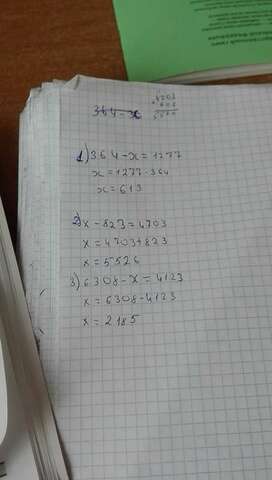 364-x
4703
1) 364-x=1277
x=1277-364
x=613
2) x-823=4703
x=4703+823
x=5526
3) 6308-x=4123
x=6308-4123
x=2185